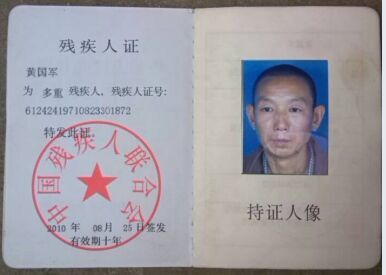 残疾人证
黄国军
为 多重 残疾人，残疾人证号：
61242419710823301872
特发此证。
中国残疾人联合会
2010 年 08月 25日签发
有效期十年
持证人像